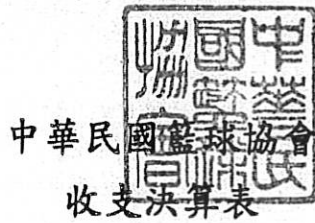 中華民國籃球協會
中華民國籃球協會
收支決算表